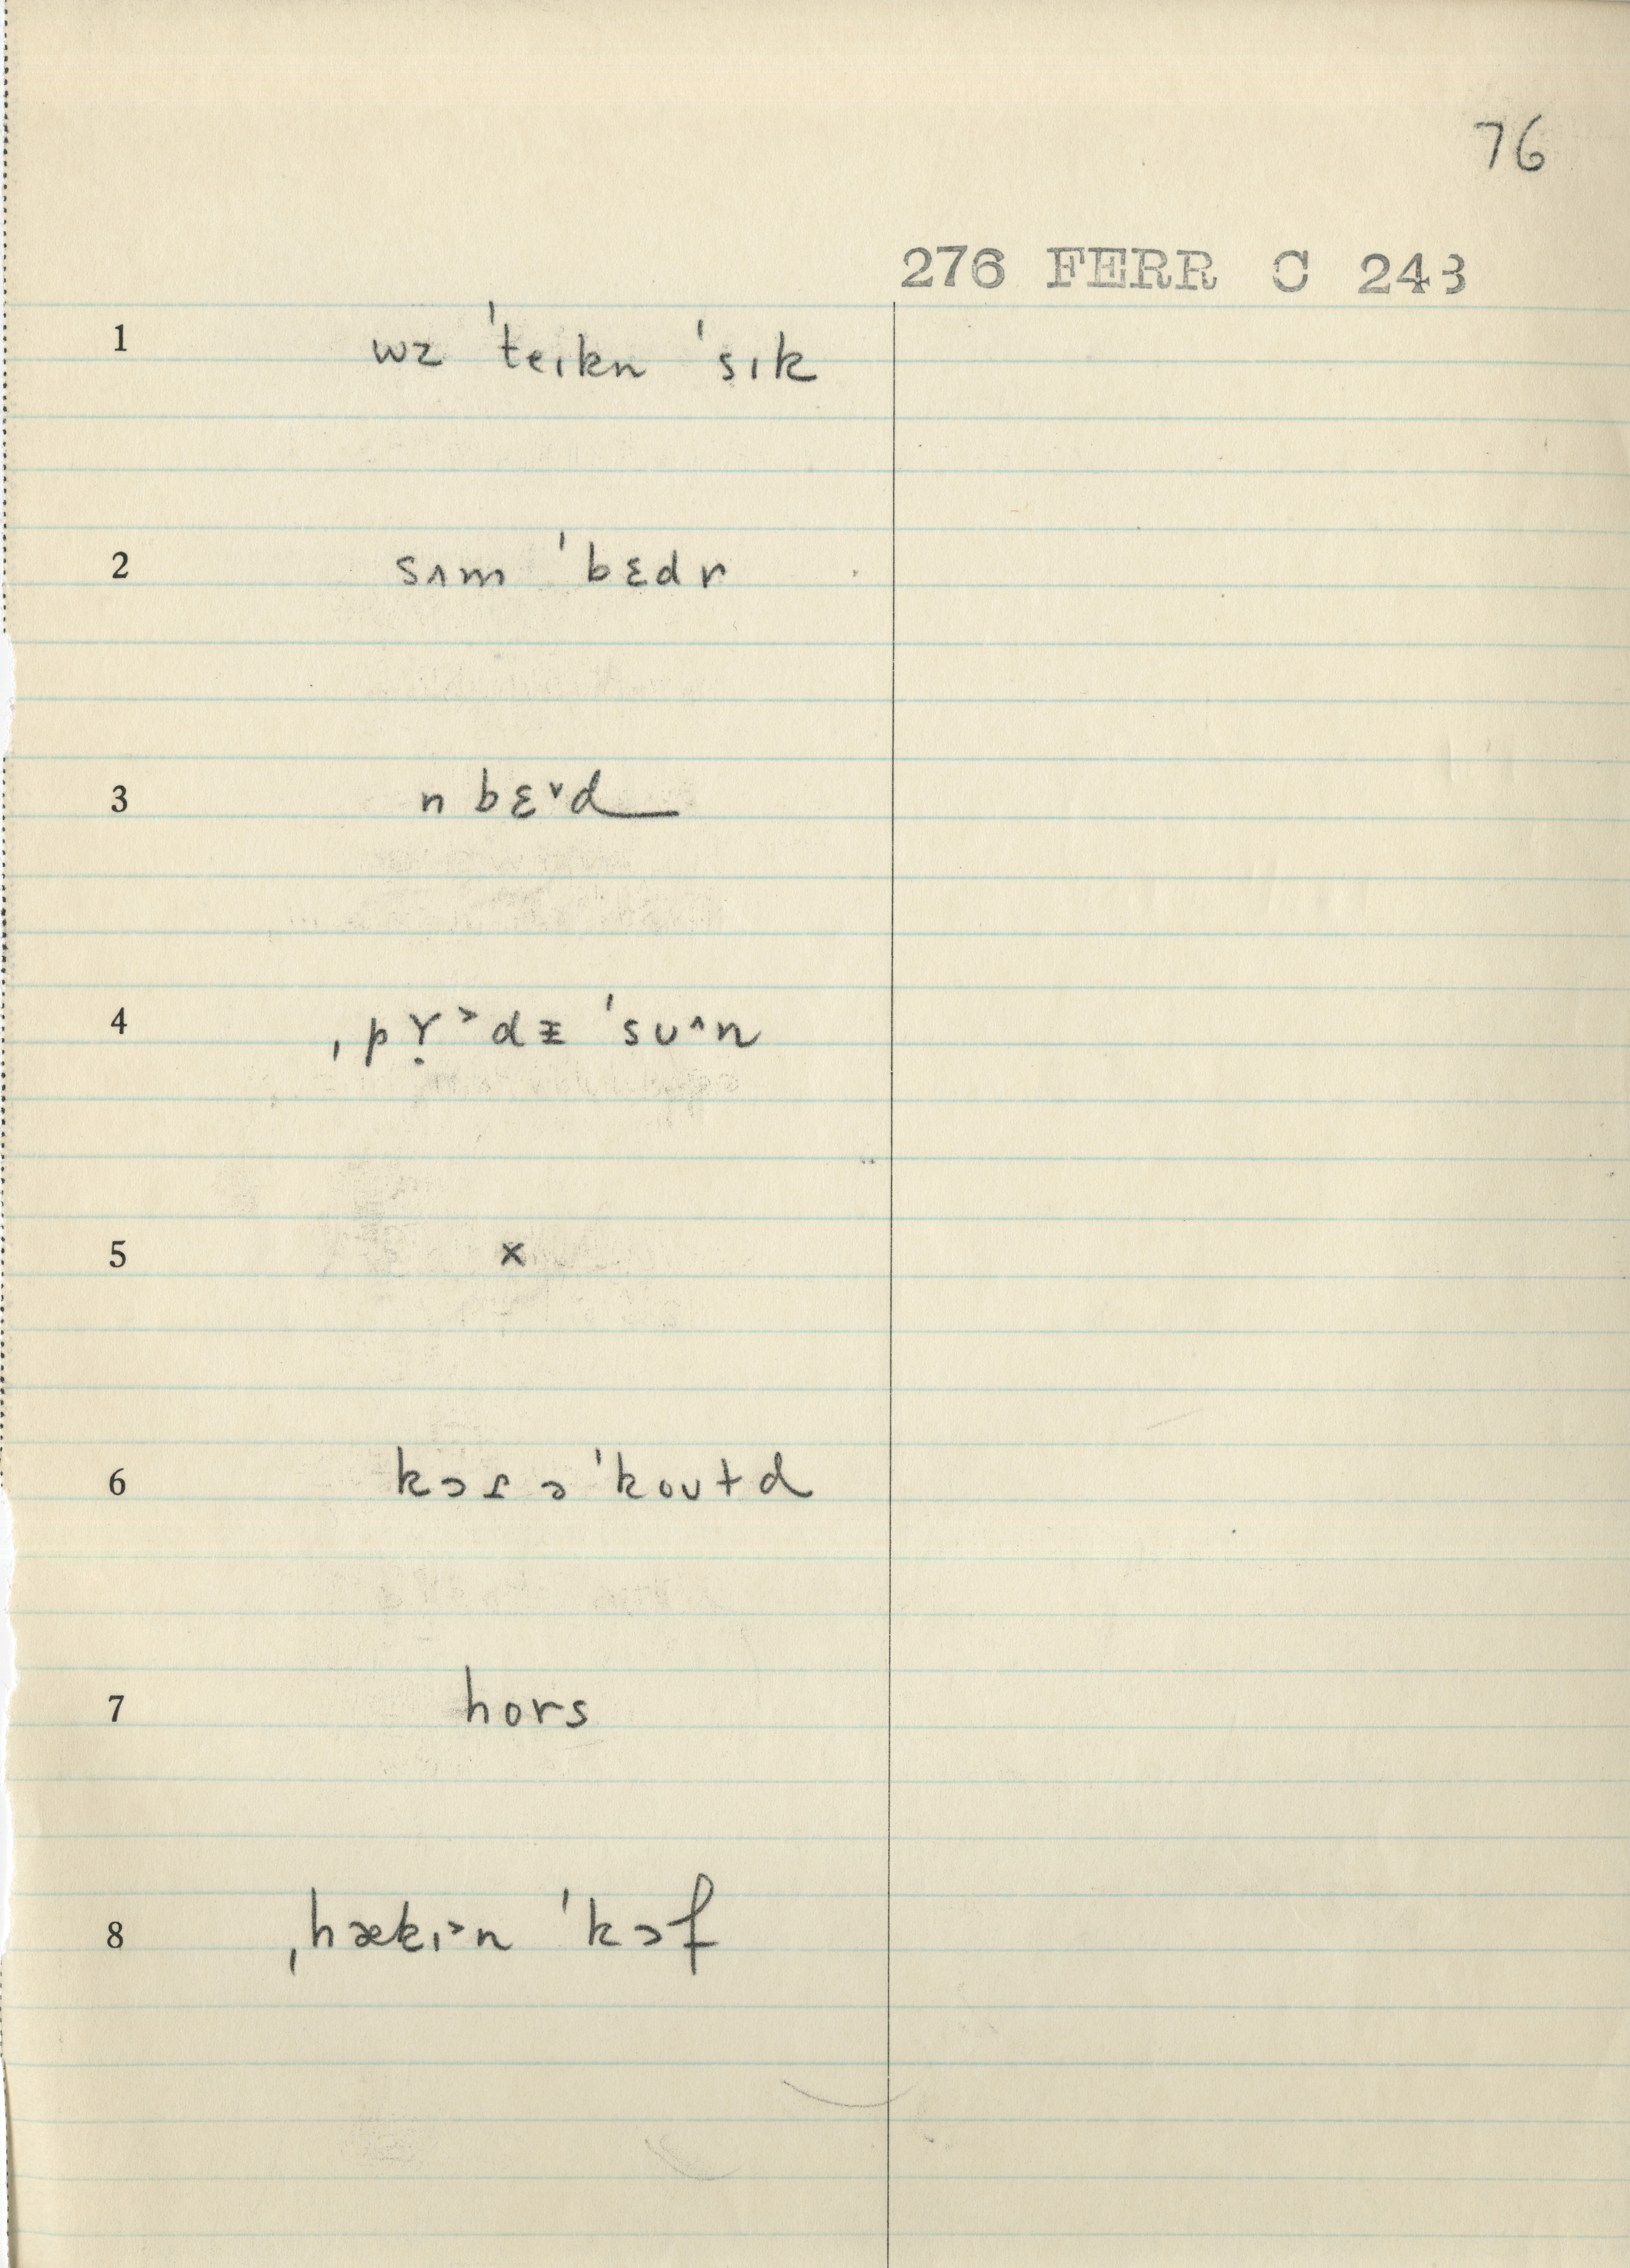 76
276 FERR C 243
1 wz ˈteɪkn ˈsɪk
2 sʌm ˈbɛdr
3 n bɛ˅d
4 ˌpɤ̣˃dɪ ˈsʊ˄n
5 x
6 kɔɾ ɔ ˈkoʊɫd
7 hors
8 ˌhækɪ˃n ˈkɔf